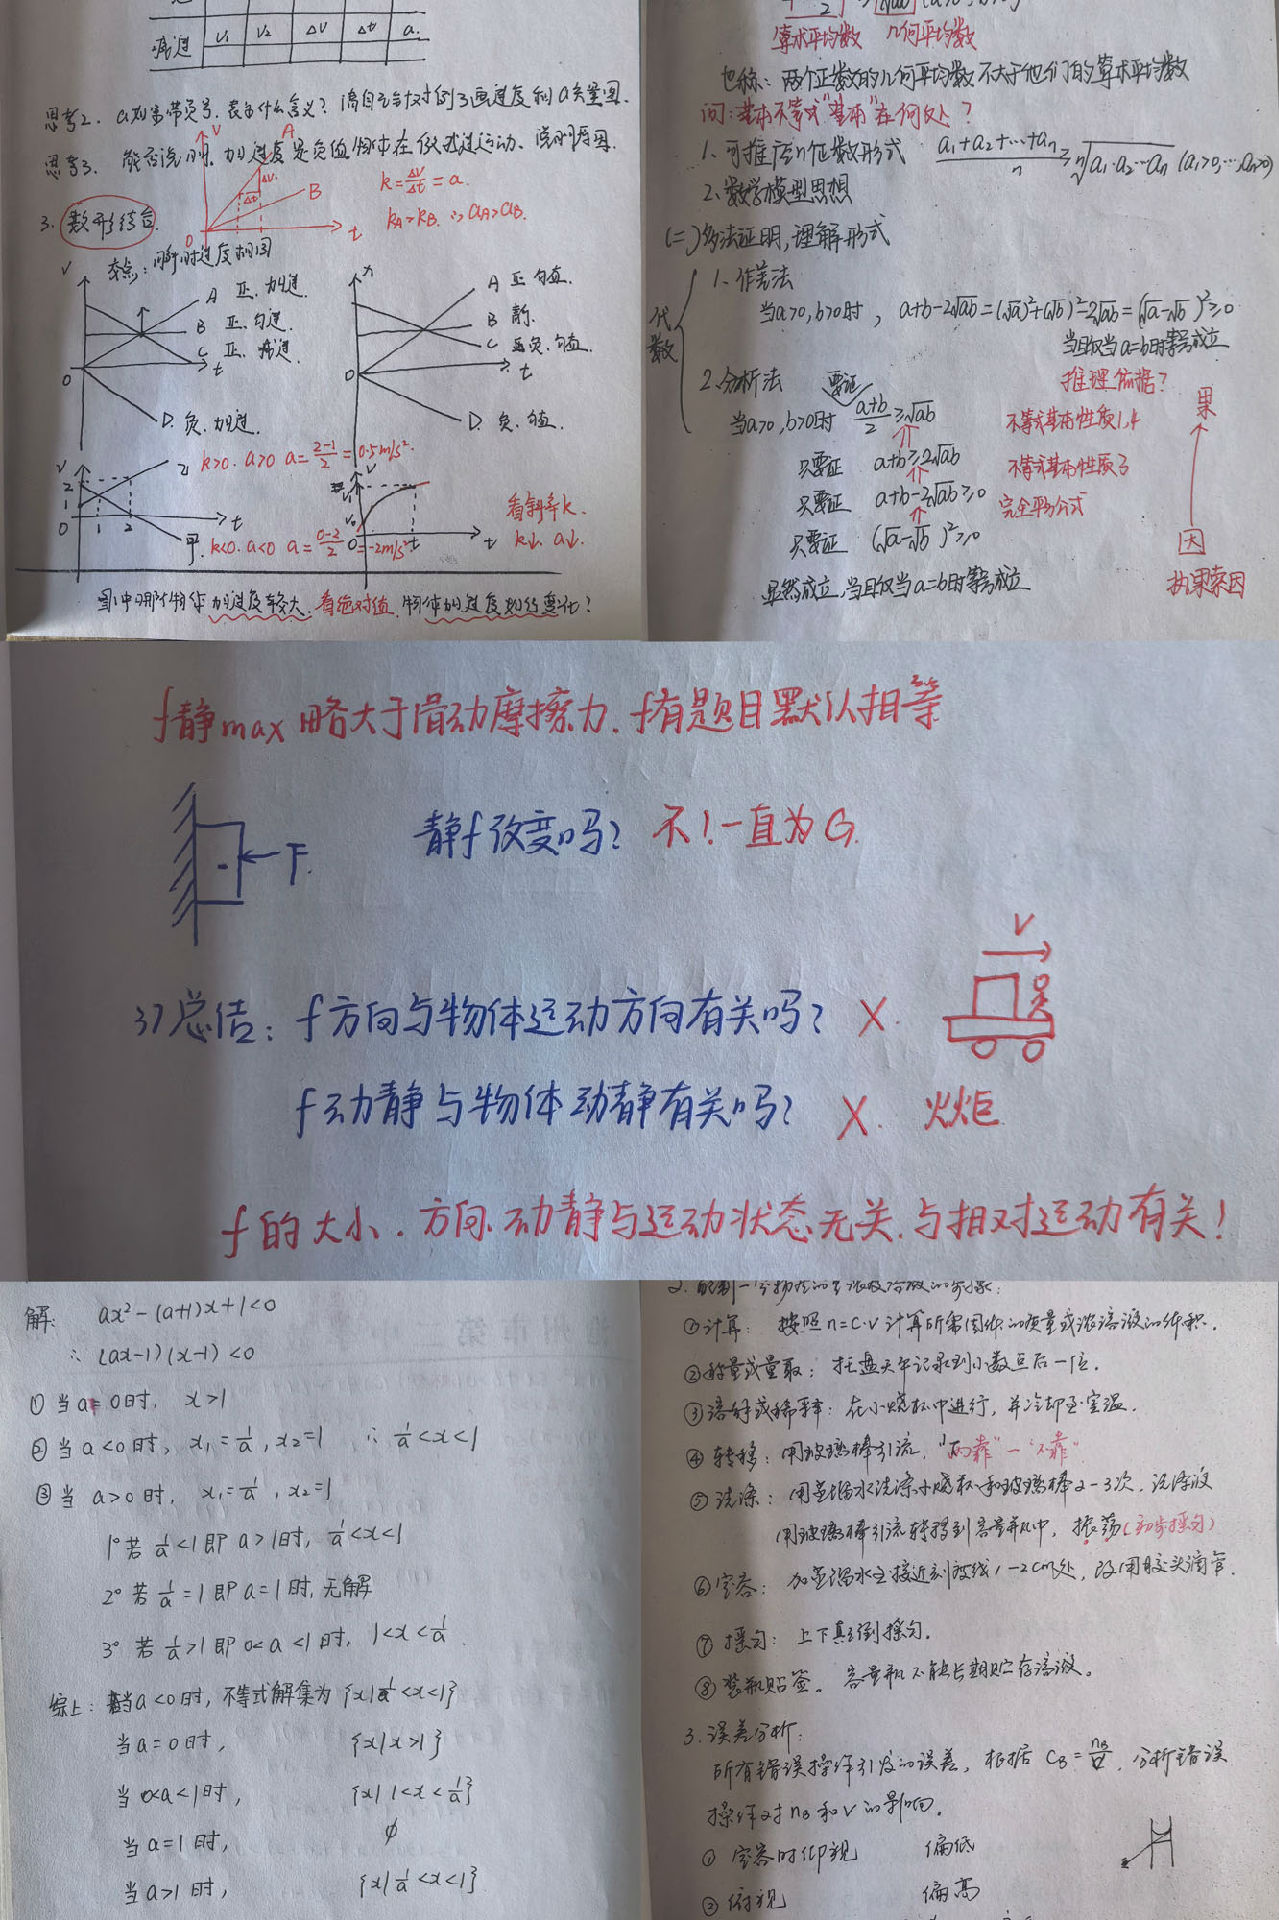 减速 v₁ v₂ Δv Δt a.
思考2. a为何带负号.表示什么含义？请自主针对例3画速度和a矢量图.
思考3. 能否说明.加速度是负值物体在做减速运动、说明原因.
v A
Δv
Δt B
0 t
k=Δv/Δt=a.
kA>kB. ∴aA>aB.
3. 数形结合.
交点：瞬时速度相同
v
A 正.加速.
B 正.匀速.
C 正.减速
t
0
D. 负.加速.
x
A 正.匀直.
B 静.
C 负.匀直.
t
0
D. 负.匀直.
v
2
1
0 1 2 t
乙 k>0. a>0 a=(2-1)/2=0.5m/s².
甲. k<0. a<0 a=(0-2)/2=-2m/s²
v
v₁
v₀
0 t t
看斜率k.
k↓. a↓.
图中哪个物体加速度较大.看绝对值.物体加速度如何变化？
算术平均数 几何平均数
也称：两个正数的几何平均数不大于他们的算术平均数
问：基本不等式“基本”在何处？
1. 可推广n个正数形式 (a₁+a₂+⋯+aₙ)/n≥ⁿ√(a₁·a₂⋯aₙ) (a₁>0,⋯,aₙ>0)
2. 数学模型思想
(二)多法证明,理解形式
代数
1. 作差法
当a>0,b>0时， a+b-2√ab=(√a)²+(√b)²-2√ab=(√a-√b)²≥0
当且仅当a=b时等号成立
2. 分析法 要证 推理依据？
当a>0,b>0时 (a+b)/2≥√ab 不等式基本性质1,4 果
只要证 a+b≥2√ab 不等式基本性质3
只要证 a+b-2√ab≥0 完全平方公式
只要证 (√a-√b)²≥0 因
显然成立,当且仅当a=b时等号成立 执果索因
f静max略大于滑动摩擦力.f有题目默认相等
F.
静f改变吗？ 不！一直为G.
3)总结：f方向与物体运动方向有关吗？ ×. V
f动静与物体动静有关吗？ ×. 火炬
f的大小.方向.动静与运动状态无关.与相对运动有关！
解： ax²-(a+1)x+1<0
∴ (ax-1)(x-1)<0
①当a=0时, x>1
②当a<0时, x₁=1/a, x₂=1 ∴ 1/a<x<1
③当 a>0时, x₁=1/a, x₂=1
1° 若 1/a<1即 a>1时, 1/a<x<1
2° 若 1/a=1即 a=1时,无解
3° 若 1/a>1即 0<a<1时, 1<x<1/a
综上：当a<0时,不等式解集为 {x|1/a<x<1}
当a=0时, {x|x>1}
当0<a<1时, {x|1<x<1/a}
当a=1时, ∅
当a>1时, {x|1/a<x<1}
①计算：按照n=c·v计算所需固体的质量或浓溶液的体积.
②称量或量取：托盘天平记录到小数点后一位.
③溶解或稀释：在小烧杯中进行，并冷却至室温.
④转移：用玻璃棒引流.“两靠”一“不靠”
⑤洗涤：用蒸馏水洗涤小烧杯和玻璃棒2-3次.洗涤液
用玻璃棒引流转移到容量瓶中，振荡(初步摇匀)
⑥定容：加蒸馏水至接近刻度线1-2cm处，改用胶头滴管.
⑦摇匀：上下颠倒摇匀.
⑧装瓶贴签。容量瓶不能长期贮存溶液。
3. 误差分析：
所有错误操作引发的误差，根据 cB=nB/V，分析错误
操作对nB和V的影响.
①定容时仰视 偏低
②俯视 偏高